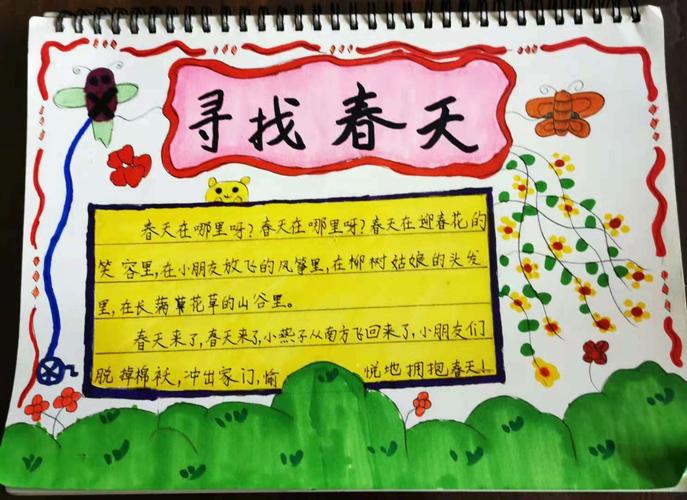 寻找春天
春天在哪里呀?春天在哪里呀?春天在迎春花的
笑容里,在小朋友放飞的风筝里,在柳树姑娘的头发
里,在长满花草的山谷里。
春天来了,春天来了,小燕子从南方飞回来了,小朋友们
脱掉棉袄,冲出家门,愉 悦地拥抱春天!